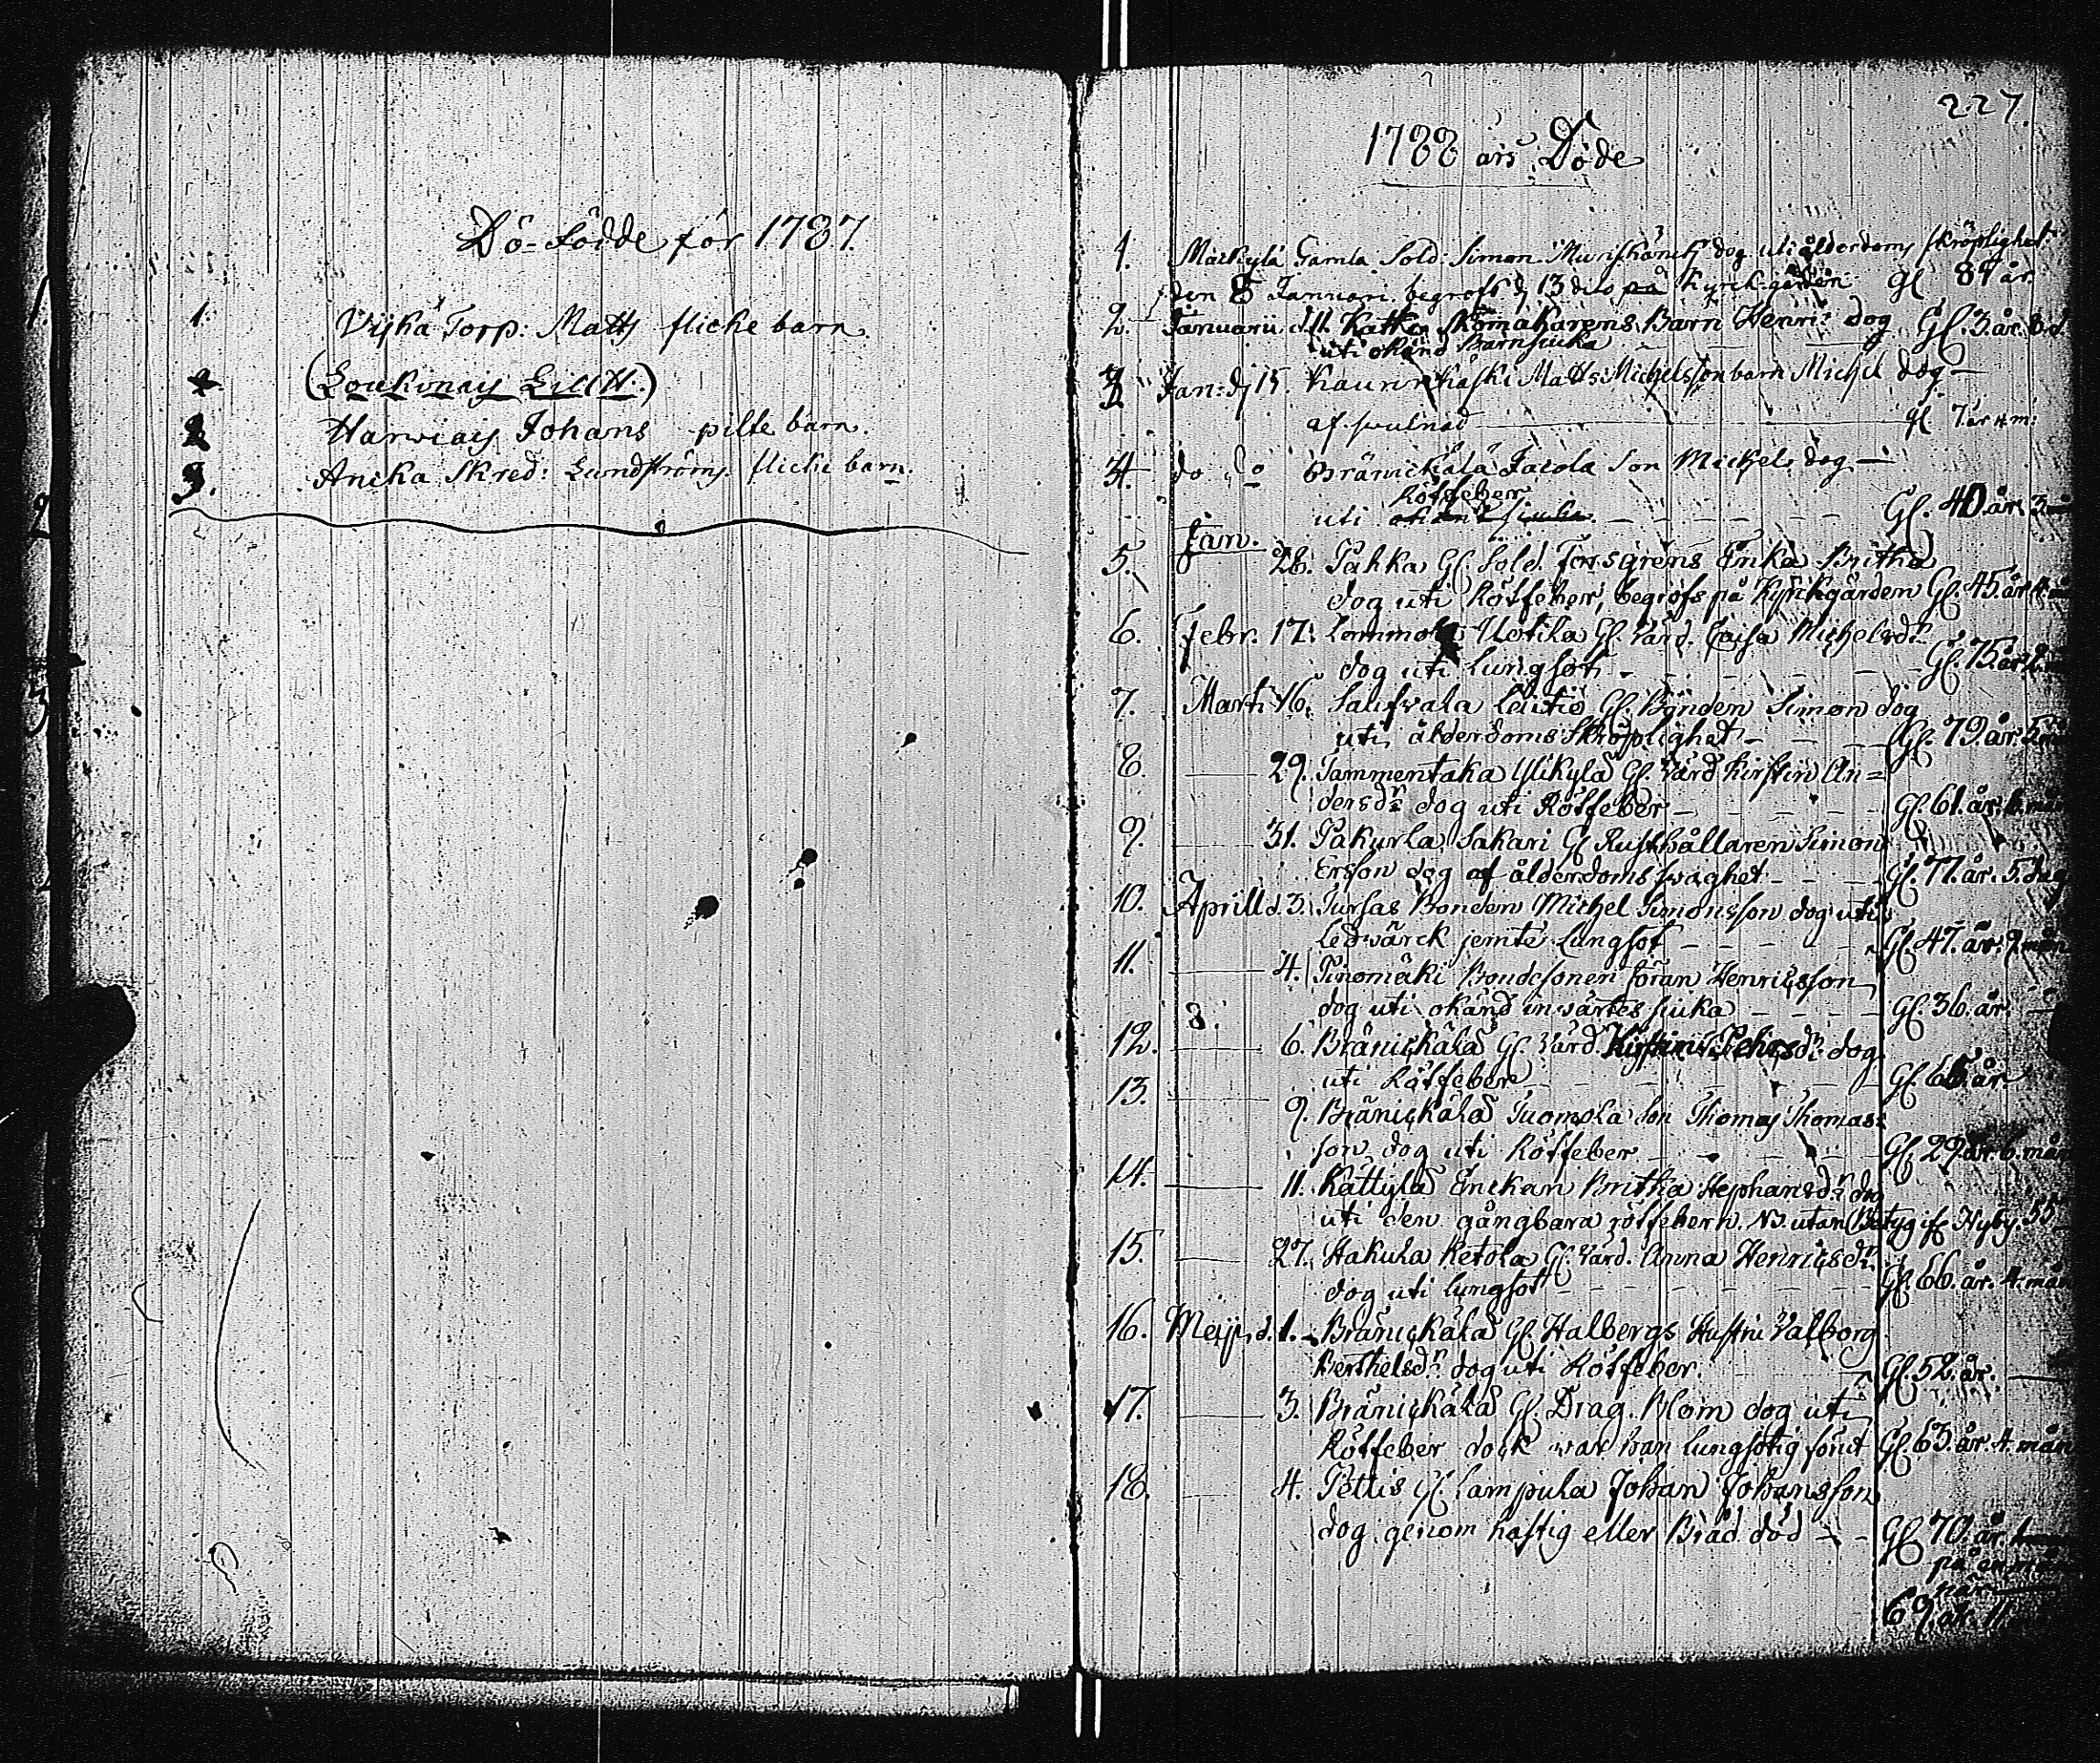 Dö-födde för 1787.
1. Vijkä Torp: Matts flicke barn.
2. (Loukonais Lillit.)
2. Harwiais Johans pilte barn.
3. Ancka Skred: Lundströms flicke barn.
227.
1788 års Döde
1. Mäikylä Gamla Sold: Simon dog uti ålderdoms skröplighet
den 8 Januari. begrofs d 13 dito på Kyrck-gården Gl 84 år.
2. Januarii d. 11. Katko Skomakarens Barn Henric dog Gl. 3. år. 8. d.
uti okänd Barnsiuka
3. Jan: d 15. Matts Michelsson barn Michel dog
af swulnad gl 7. år 4 m:
4. do do Bränickälä Jacola Son Mickel dog
Rötfeber
uti okänd siuka. Gl. 40. år. 3.
Jan.
5. 28. Pahka Gl. Sold. Forsgrens Enka Britha
dog uti Rötfeber, begrofs på Kyrckgården Gl. 45. år 4.
6. Febr. 17. Uotila Gl. Värd. Caisa Michelsdr
dog uti lungsot Gl. 75. år
7. Marti 16. Saufwala Lautio Gl. Bonden Simon dog
uti ålderdoms skröplighet Gl. 79. år. 5.
8. 29. Tammentaka Ylikylä Gl. Värd Kirstin An=
dersdr dog uti Rötfeber Gl. 61. år. 6. mån
9. 31. Pakurla Sakari Gl Rusthållaren Simon
Ersson dog af ålderdoms swaghet Gl. 77. år. 5. dag
10. Aprill d. 3. Tursas Bonden Michel Simonsson dog uti
ledwärck jemte Lungsot Gl. 47. år. 9. mån
11. 4. Tinomäki Bondesonen Jöran Henricsson
dog uti okänd invärtes siuka Gl. 36. år.
8.
12. 6. Bränickälä Gl. Värd. Kirstin Pehrsdr dog
uti Rötfeber Gl. 65. år.
13. 9. Bränickälä Tuomola Son Thomas Thomas=
son dog uti Rötfeber Gl. 29. år. 6. mån
14. 11. Kättylä Enckan Britha Stephansdr dog
uti den gångbara rötfebern. NB. utan Betyg ifr. Nyby. 55
15. 27. Hakula Ketola Gl. Värd. Anna Henricsdr
dog uti lungsot Gl. 66. år. 4. mån
16. Meij. d. 1. Bränickälä Gl. Halbergs Hustru Valborg
Berthelsdr dog uti Rötfeber. Gl. 52. år.
17. 3. Bränickälä Gl. Drag. Blom dog uti
Rötfeber dock war han lungsotig förut Gl. 63. år. 4. mån
18. 4. Pettis Gl. Lampula Johan Johansson
dog genom hastig eller Bråd död Gl. 70. år.
på
når
69. år. 11